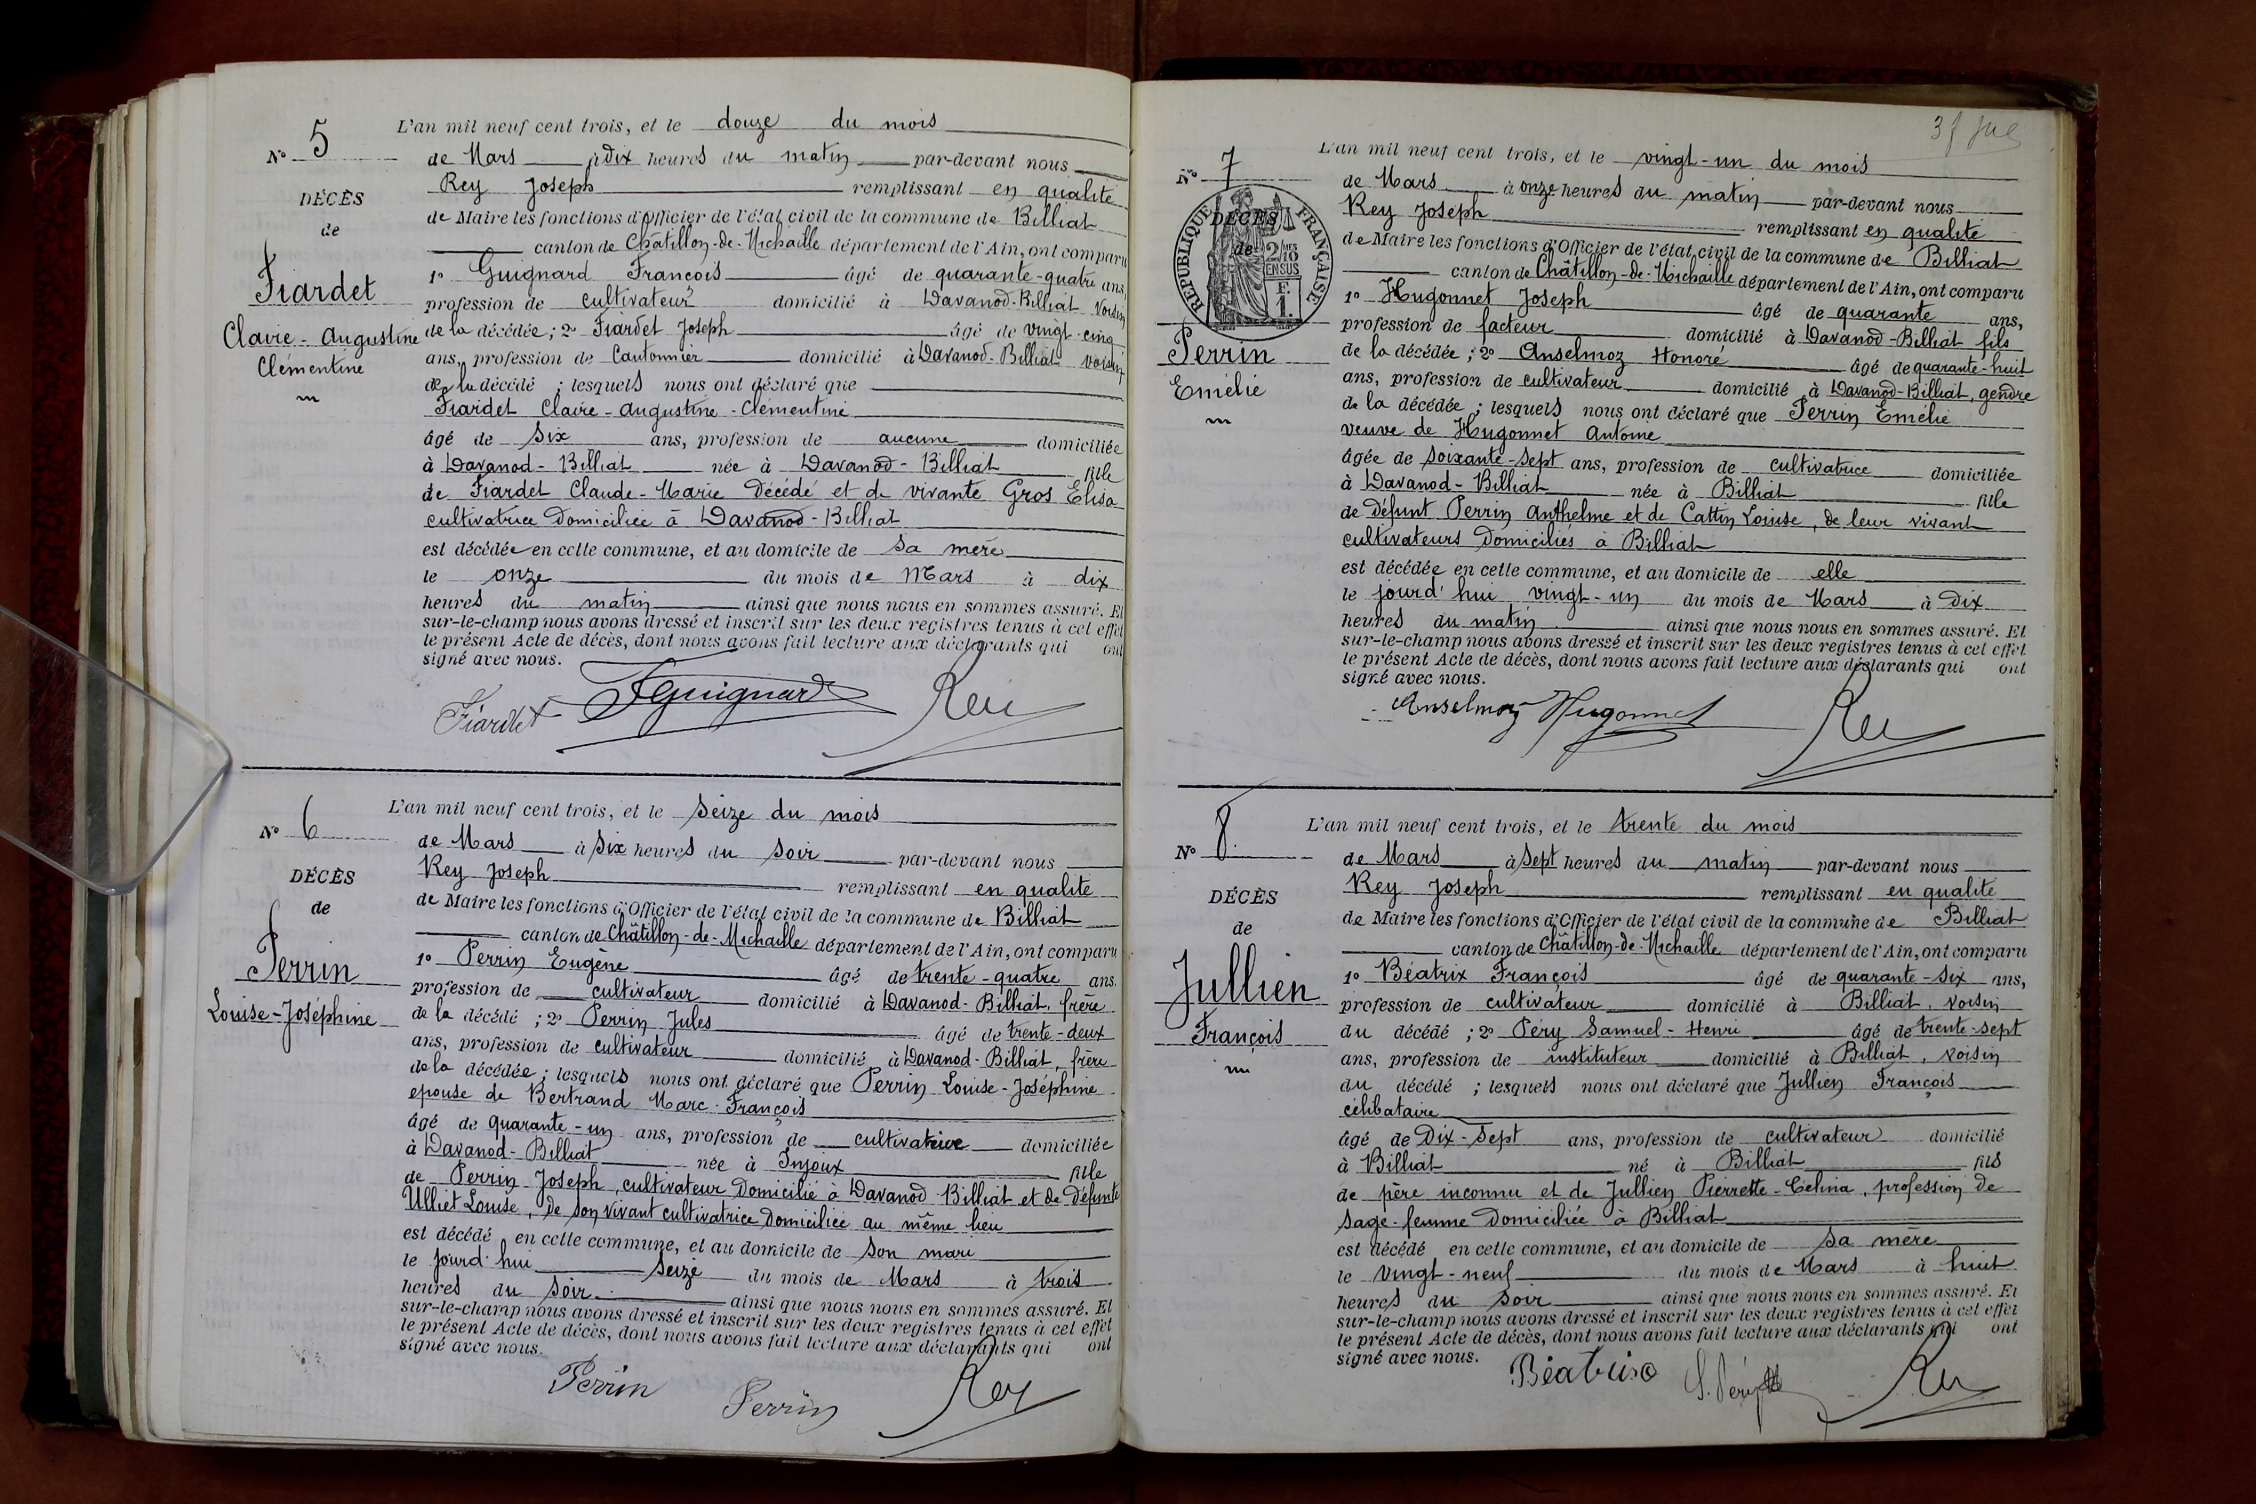 N° 5
DÉCÈS
de
Fiardet
Claire-Augustine
Clémentine
L'an mil neuf cent trois, et le douze du mois
de Mars à dix heures du matin par-devant nous
Rey Joseph remplissant en qualité
de Maire les fonctions d'Officier de l'état civil de la commune de Billiat
canton de Châtillon-de-Michaille département de l'Ain, ont comparu
1° Guignard François âgé de quarante-quatre ans,
profession de cultivateur domicilié à Davanod-Billiat voisin
de la décédée; 2° Fiardet Joseph âgé de vingt-cinq
ans, profession de Cantonnier domicilié à Davanod-Billiat voisin
de la décédé ; lesquels nous ont déclaré que
Fiardet Claire-Augustine-Clémentine
âgé de six ans, profession de aucune domiciliée
à Davanod-Billiat née à Davanod-Billiat fille
de Fiardet Claude-Marie décédé et de vivante Gros Elisa
cultivatrice domiciliée à Davanod-Billiat
est décédée en cette commune, et au domicile de sa mère
le onze du mois de Mars à dix
heures du matin ainsi que nous nous en sommes assuré. Et
sur-le-champ nous avons dressé et inscrit sur les deux registres tenus à cet effet
le présent Acte de décès, dont nous avons fait lecture aux déclarants qui ont
signé avec nous.
Fiardet FGuignard Rey
N° 6
DÉCÈS
de
Perrin
Louise-Joséphine
L'an mil neuf cent trois, et le seize du mois
de Mars à six heures du soir par-devant nous
Rey Joseph remplissant en qualité
de Maire les fonctions d'Officier de l'état civil de la commune de Billiat
canton de Châtillon-de-Michaille département de l'Ain, ont comparu
1° Perrin Eugène âgé de trente-quatre ans.
profession de cultivateur domicilié à Davanod-Billiat, frère
de la décédé ; 2° Perrin Jules âgé de trente-deux
ans, profession de cultivateur domicilié à Davanod-Billiat, frère
de la décédée ; lesquels nous ont déclaré que Perrin Louise-Joséphine
epouse de Bertrand Marc-François
âgé de quarante-un ans, profession de cultivatrice domiciliée
à Davanod-Billiat née à Injoux fille
de Perrin Joseph, cultivateur domicilié à Davanod Billiat et de défunte
Ulliet Louise, de son vivant cultivatrice domiciliée au même lieu
est décédé en cette commune, et au domicile de son mari
le jourd'hui seize du mois de Mars à trois
heures du soir ainsi que nous nous en sommes assuré. Et
sur-le-champ nous avons dressé et inscrit sur les deux registres tenus à cet effet
le présent Acte de décès, dont nous avons fait lecture aux déclarants qui ont
signé avec nous.
Perrin Perrin Rey
N° 7
DÉCÈS
de
RÉPUBLIQUE FRANÇAISE
Perrin
Emélie
L'an mil neuf cent trois, et le vingt-un du mois
de Mars à onze heures du matin par-devant nous
Rey Joseph remplissant en qualité
de Maire les fonctions d'Officier de l'état civil de la commune de Billiat
canton de Châtillon-de-Michaille département de l'Ain, ont comparu
1° Hugonnet Joseph âgé de quarante ans,
profession de facteur domicilié à Davanod-Billiat fils
de la décédée ; 2° Anselmoz Honoré âgé de quarante-huit
ans, profession de cultivateur domicilié à Davanod-Billiat, gendre
de la décédée ; lesquels nous ont déclaré que Perrin Emélie
veuve de Hugonnet Antoine
âgée de soixante-sept ans, profession de cultivatrice domiciliée
à Davanod-Billiat née à Billiat fille
de défunt Perrin Anthelme et de Cattin Louise, de leur vivant
cultivateurs domiciliés à Billiat
est décédée en cette commune, et au domicile de elle
le jourd'hui vingt-un du mois de Mars à dix
heures du matin ainsi que nous nous en sommes assuré. Et
sur-le-champ nous avons dressé et inscrit sur les deux registres tenus à cet effet
le présent Acte de décès, dont nous avons fait lecture aux déclarants qui ont
signé avec nous.
Anselmoz Hugonnet Rey
N° 8
DÉCÈS
de
Jullien
François
L'an mil neuf cent trois, et le trente du mois
de Mars à sept heures du matin par-devant nous
Rey Joseph remplissant en qualité
de Maire les fonctions d'Officier de l'état civil de la commune de Billiat
canton de Châtillon-de-Michaille département de l'Ain, ont comparu
1° Béatrix François âgé de quarante-six ans,
profession de cultivateur domicilié à Billiat, voisin
du décédé ; 2° Péry Samuel-Henri âgé de trente-sept
ans, profession de instituteur domicilié à Billiat, voisin
du décédé ; lesquels nous ont déclaré que Jullien François
célibataire
âgé de Dix-sept ans, profession de cultivateur domicilié
à Billiat né à Billiat fils
de père inconnu et de Jullien Pierrette-Célina, profession de
sage-femme domiciliée à Billiat
est décédé en cette commune, et au domicile de sa mère
le vingt-neuf du mois de Mars à huit
heures du soir ainsi que nous nous en sommes assuré. Et
sur-le-champ nous avons dressé et inscrit sur les deux registres tenus à cet effet
le présent Acte de décès, dont nous avons fait lecture aux déclarants qui ont
signé avec nous.
Béatrix S. Péry Rey